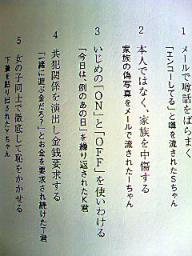 1 メールで噂話をばらまく
「エンコーしてる」と噂を流されたSちゃん
2 本人ではなく、家族を中傷する
家族の偽写真をメールで流されたIちゃん
3 いじめの「ON」と「OFF」を使いわける
「今日は、例のあの日」を繰り返されたK君
4 共犯関係を演出し金銭要求する
「一緒に遊ぶ金だろ」とお金を要求され続けたT君
5 女の子同士で徹底して恥をかかせる
下着を貼り出されたYちゃん